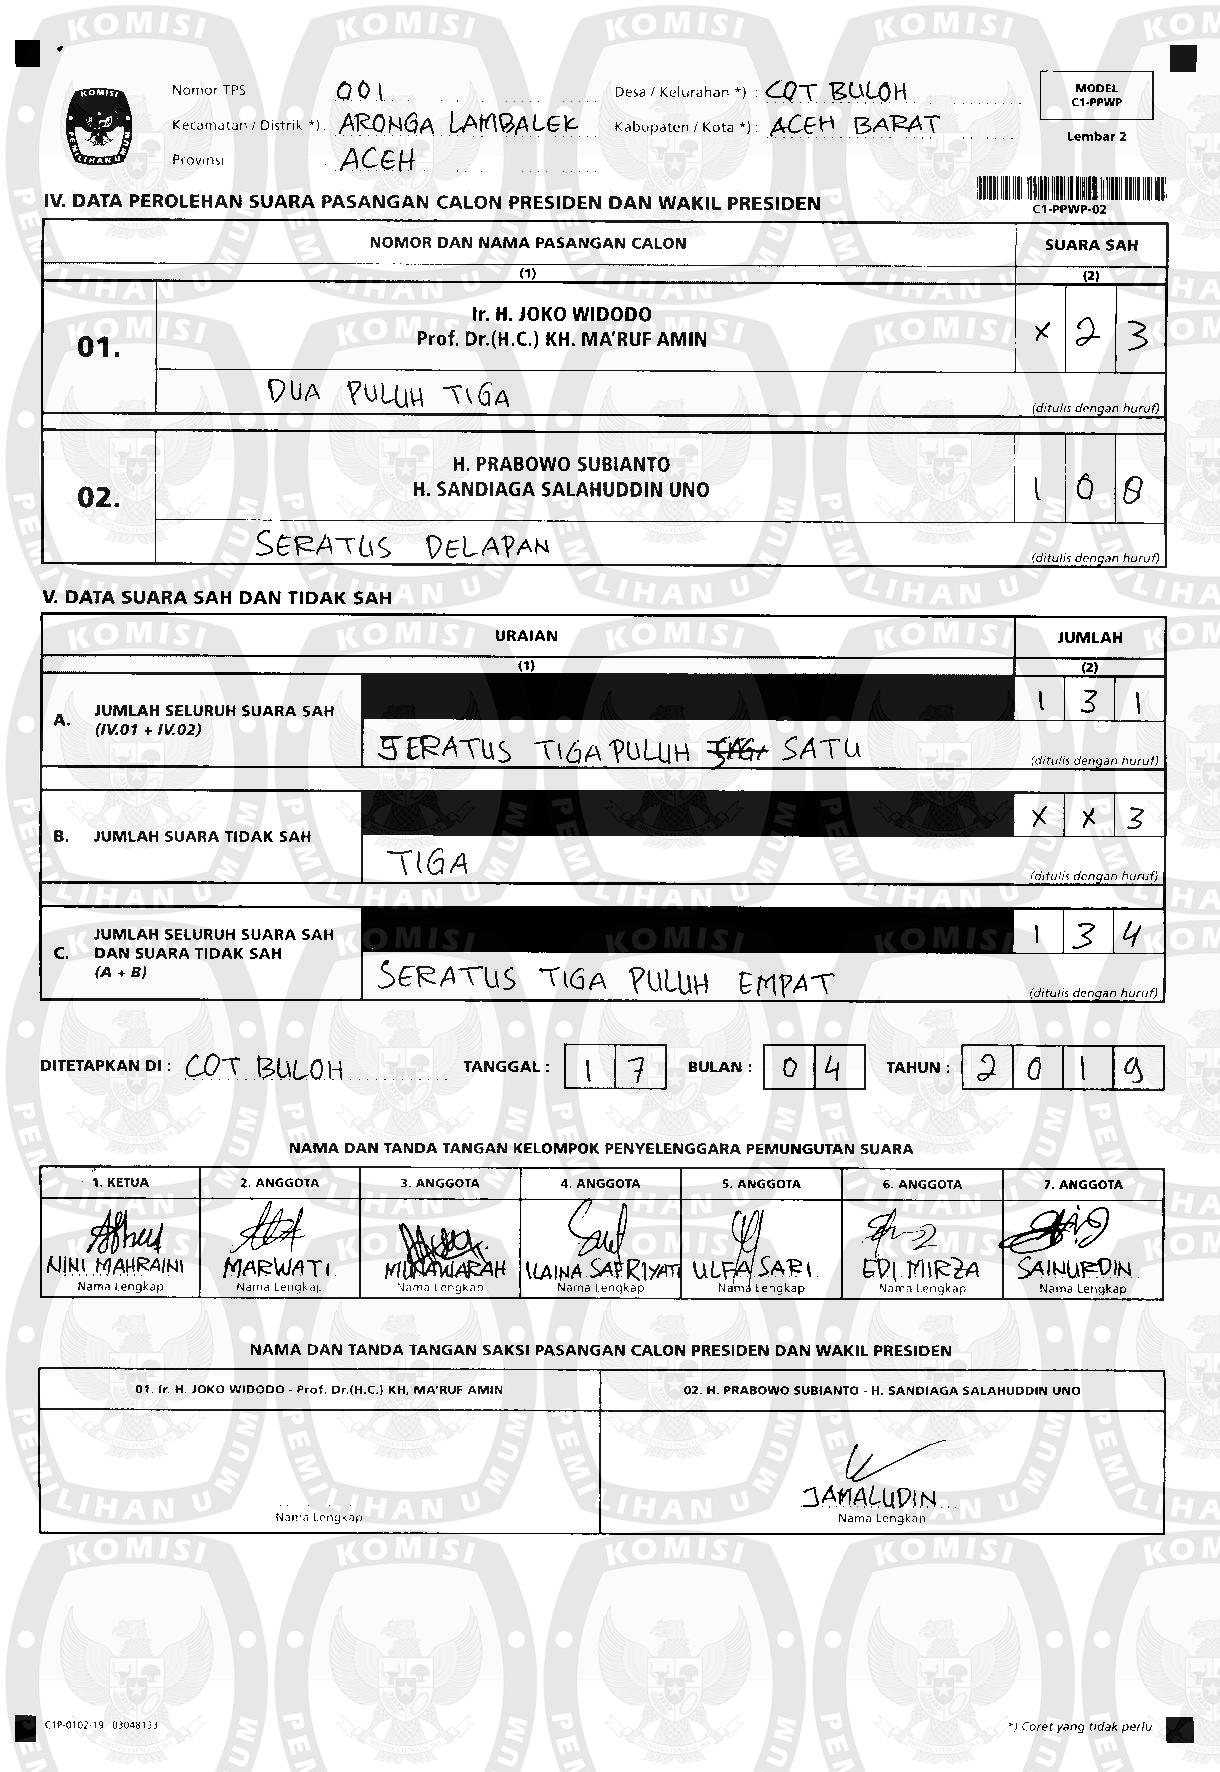 Nomor TPS 001 Desa / Kelurahan *) : COT BULOH
MODEL
C1-PPWP
Kecamatan / Distrik *) : ARONGA LAMBALEK Kabupaten / Kota *) : ACEH BARAT
Lembar 2
Provinsi : ACEH
C1-PPWP-02
IV. DATA PEROLEHAN SUARA PASANGAN CALON PRESIDEN DAN WAKIL PRESIDEN
NOMOR DAN NAMA PASANGAN CALON SUARA SAH
(1) (2)
01. Ir. H. JOKO WIDODO
Prof. Dr.(H.C.) KH. MA'RUF AMIN X 2 3
DUA PULUH TIGA (ditulis dengan huruf)
02. H. PRABOWO SUBIANTO
H. SANDIAGA SALAHUDDIN UNO 1 0 8
SERATUS DELAPAN (ditulis dengan huruf)
V. DATA SUARA SAH DAN TIDAK SAH
URAIAN JUMLAH
(1) (2)
A. JUMLAH SELURUH SUARA SAH
(IV.01 + IV.02) 1 3 1
SERATUS TIGA PULUH SATU (ditulis dengan huruf)
B. JUMLAH SUARA TIDAK SAH X X 3
TIGA (ditulis dengan huruf)
C. JUMLAH SELURUH SUARA SAH
DAN SUARA TIDAK SAH
(A + B) 1 3 4
SERATUS TIGA PULUH EMPAT (ditulis dengan huruf)
DITETAPKAN DI : COT BULOH TANGGAL : 1 7 BULAN : 0 4 TAHUN : 2 0 1 9
NAMA DAN TANDA TANGAN KELOMPOK PENYELENGGARA PEMUNGUTAN SUARA
1. KETUA 2. ANGGOTA 3. ANGGOTA 4. ANGGOTA 5. ANGGOTA 6. ANGGOTA 7. ANGGOTA
NINI MAHRAINI MARWATI MUNAWARAH ILAINA SAFRIYATI ULFA SARI EDI MIRZA SAINURDIN
Nama Lengkap Nama Lengkap Nama Lengkap Nama Lengkap Nama Lengkap Nama Lengkap Nama Lengkap
NAMA DAN TANDA TANGAN SAKSI PASANGAN CALON PRESIDEN DAN WAKIL PRESIDEN
01. Ir. H. JOKO WIDODO - Prof. Dr.(H.C.) KH. MA'RUF AMIN 02. H. PRABOWO SUBIANTO - H. SANDIAGA SALAHUDDIN UNO
JAMALUDIN
Nama Lengkap Nama Lengkap
C1P-0102-19 03048133 *) Coret yang tidak perlu